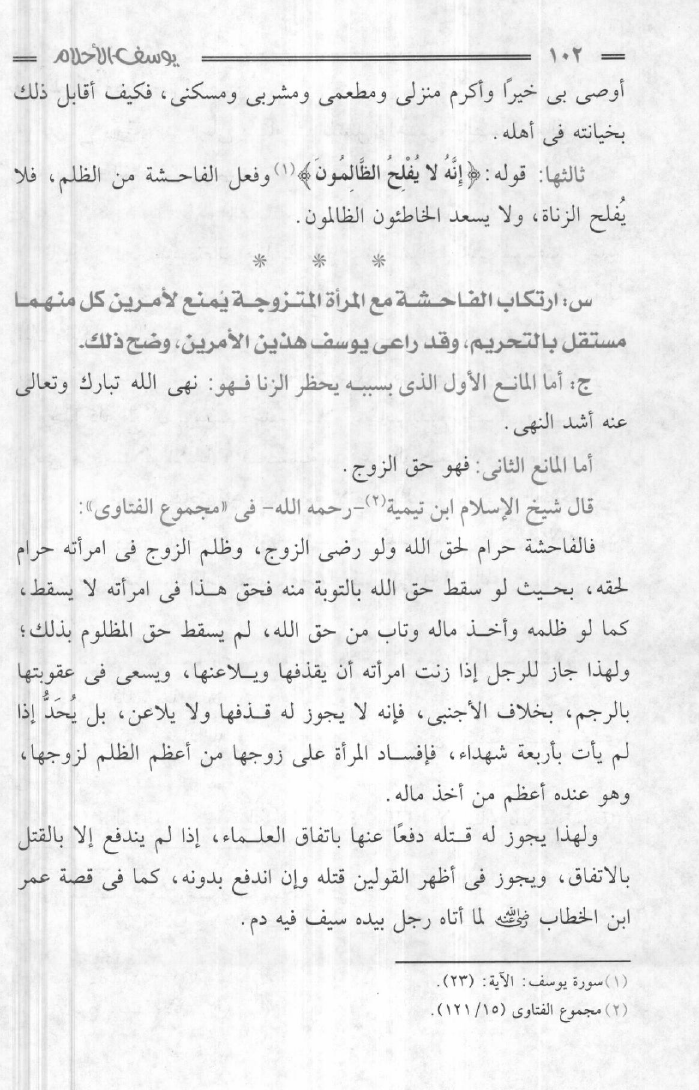 ١٠٢ يوسف الأحلام
أوصى بى خيرًا وأكرم منزلى ومطعمى ومشربى ومسكنى، فكيف أقابل ذلك
بخيانته فى أهله.
ثالثها: قوله: ﴿إِنَّهُ لا يُفْلِحُ الظَّالِمُونَ﴾(١) وفعل الفاحشة من الظلم، فلا
يُفلح الزناة، ولا يسعد الخاطئون الظالمون.
* * *
س: ارتكاب الفاحشة مع المرأة المتزوجة يُمنع لأمرين كل منهما
مستقل بالتحريم، وقد راعى يوسف هذين الأمرين، وضح ذلك.
ج: أما المانع الأول الذى بسببه يحظر الزنا فهو: نهى الله تبارك وتعالى
عنه أشد النهى.
أما المانع الثانى: فهو حق الزوج.
قال شيخ الإسلام ابن تيمية(٢) -رحمه الله- فى «مجموع الفتاوى»:
فالفاحشة حرام لحق الله ولو رضى الزوج، وظلم الزوج فى امرأته حرام
لحقه، بحيث لو سقط حق الله بالتوبة منه فحق هذا فى امرأته لا يسقط،
كما لو ظلمه وأخذ ماله وتاب من حق الله، لم يسقط حق المظلوم بذلك؛
ولهذا جاز للرجل إذا زنت امرأته أن يقذفها ويلاعنها، ويسعى فى عقوبتها
بالرجم، بخلاف الأجنبى، فإنه لا يجوز له قذفها ولا يلاعن، بل يُحَدُّ إذا
لم يأت بأربعة شهداء، فإفساد المرأة على زوجها من أعظم الظلم لزوجها،
وهو عنده أعظم من أخذ ماله.
ولهذا يجوز له قتله دفعًا عنها باتفاق العلماء، إذا لم يندفع إلا بالقتل
بالاتفاق، ويجوز فى أظهر القولين قتله وإن اندفع بدونه، كما فى قصة عمر
ابن الخطاب رضي الله عنه لما أتاه رجل بيده سيف فيه دم.
(١) سورة يوسف: الآية: (٢٣).
(٢) مجموع الفتاوى (١٢١/١٥).